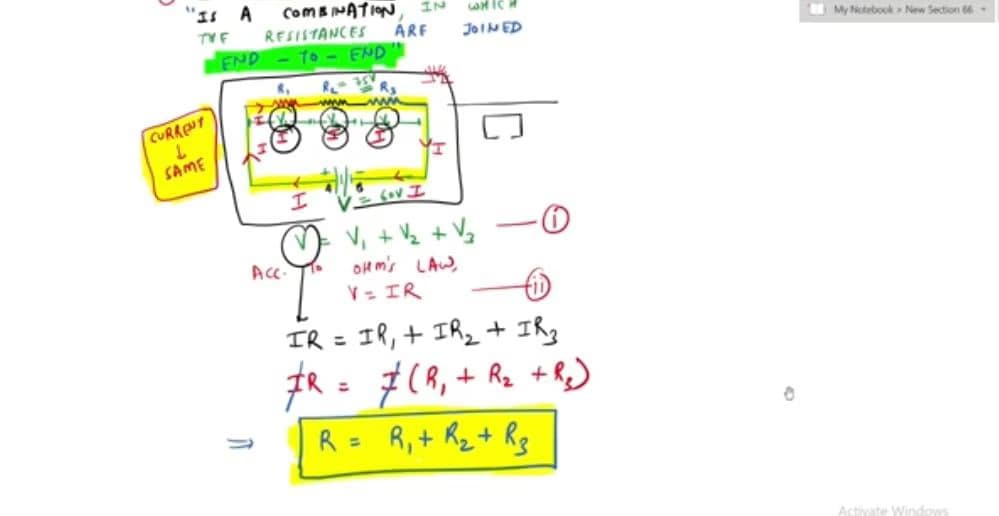 "IS A COMBINATION, IN WHICH
THE RESISTANCES ARE JOINED
END - TO - END"
My Notebook > New Section 66
R₁ R₂ = R₃
CURRENT
↓
SAME
I
I
I I I
I
I
A B
I
V = 60V I
V = V₁ + V₂ + V₃ (i)
ACC. To OHM'S LAW,
V = IR (ii)
IR = IR₁ + IR₂ + IR₃
IR = I (R₁ + R₂ + R₃)
⇒ R = R₁ + R₂ + R₃
Activate Windows